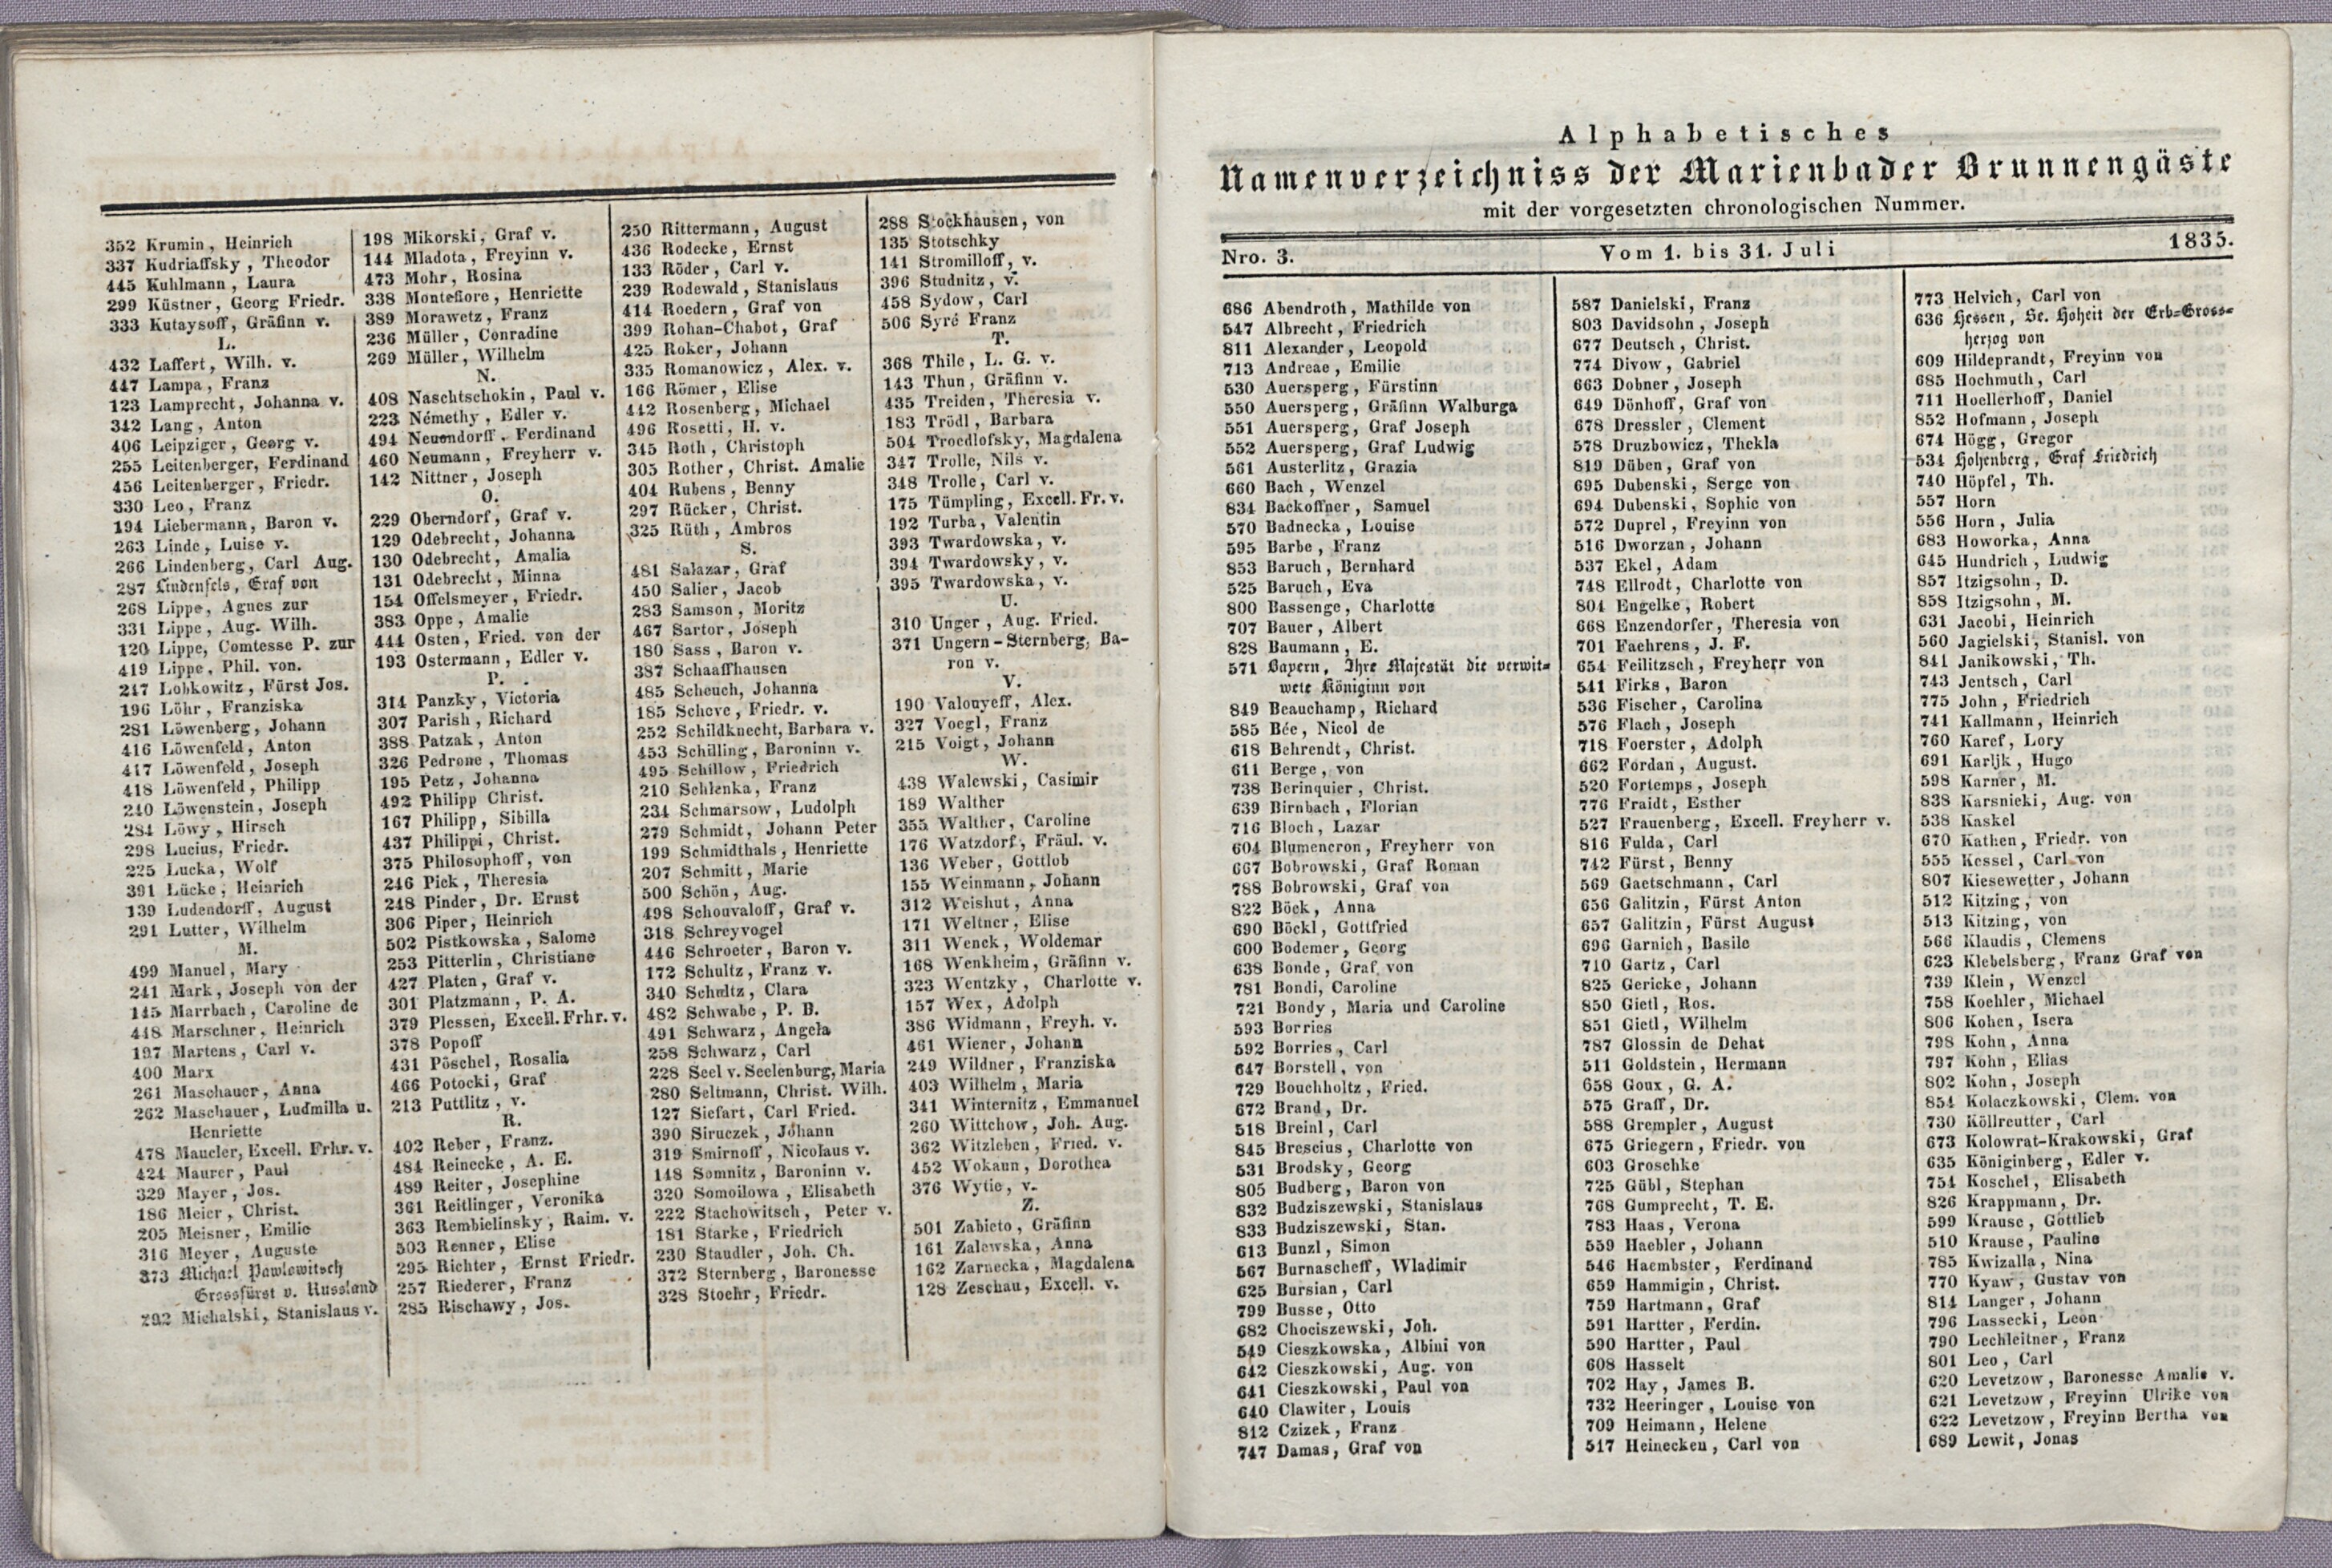 352 Krumin, Heinrich
337 Kudriaffsky, Theodor
445 Kuhlmann, Laura
299 Küstner, Georg Friedr.
333 Kutaysoff, Gräfinn v.
L.
432 Laffert, Wilh. v.
447 Lampa, Franz
123 Lamprecht, Johanna v.
342 Lang, Anton
406 Leipziger, Georg v.
255 Leitenberger, Ferdinand
456 Leitenberger, Friedr.
330 Leo, Franz
194 Liebermann, Baron v.
263 Linde, Luise v.
266 Lindenberg, Carl Aug.
287 Lindenfels, Graf von
268 Lippe, Agnes zur
331 Lippe, Aug. Wilh.
120 Lippe, Comtesse P. zur
419 Lippe, Phil. von.
247 Lobkowitz, Fürst Jos.
196 Löhr, Franziska
281 Löwenberg, Johann
416 Löwenfeld, Anton
417 Löwenfeld, Joseph
418 Löwenfeld, Philipp
240 Löwenstein, Joseph
284 Löwy, Hirsch
298 Lucius, Friedr.
225 Lucka, Wolf
391 Lücke, Heinrich
139 Ludendorff, August
291 Lutter, Wilhelm
M.
499 Manuel, Mary
241 Mark, Joseph von der
145 Marrbach, Caroline de
448 Marschner, Heinrich
197 Martens, Carl v.
400 Marx
261 Maschauer, Anna
262 Maschauer, Ludmilla u.
Henriette
478 Maucler, Excell. Frhr. v.
424 Maurer, Paul
329 Mayer, Jos.
186 Meier, Christ.
205 Meisner, Emilie
316 Meyer, Auguste
373 Michael Pawlowitsch
Grossfürst v. Russland
292 Michalski, Stanislaus v.
198 Mikorski, Graf v.
144 Mladota, Freyinn v.
473 Mohr, Rosina
338 Montefiore, Henriette
389 Morawetz, Franz
236 Müller, Conradine
269 Müller, Wilhelm
N.
408 Naschtschokin, Paul v.
223 Némethy, Edler v.
494 Neuendorff, Ferdinand
460 Neumann, Freyherr v.
142 Nittner, Joseph
O.
229 Oberndorf, Graf v.
129 Odebrecht, Johanna
130 Odebrecht, Amalia
131 Odebrecht, Minna
154 Offelsmeyer, Friedr.
383 Oppe, Amalie
444 Osten, Fried. von der
193 Ostermann, Edler v.
P.
314 Panzky, Victoria
307 Parish, Richard
388 Patzak, Anton
326 Pedrone, Thomas
195 Petz, Johanna
492 Philipp Christ.
167 Philipp, Sibilla
437 Philippi, Christ.
375 Philosophoff, von
246 Pick, Theresia
248 Pinder, Dr. Ernst
306 Piper, Heinrich
502 Pistkowska, Salome
253 Pitterlin, Christiane
427 Platen, Graf v.
301 Platzmann, P. A.
379 Plessen, Excell. Frhr. v.
378 Popoff
431 Pöschel, Rosalia
466 Potocki, Graf
213 Puttlitz, v.
R.
402 Reber, Franz.
484 Reinecke, A. E.
489 Reiter, Josephine
361 Reitlinger, Veronika
363 Rembielinsky, Raim. v.
503 Renner, Elise
295 Richter, Ernst Friedr.
257 Riederer, Franz
285 Rischawy, Jos.
250 Rittermann, August
436 Rodecke, Ernst
133 Röder, Carl v.
239 Rodewald, Stanislaus
414 Roedern, Graf von
399 Rohan-Chabot, Graf
425 Roker, Johann
335 Romanowicz, Alex. v.
166 Römer, Elise
442 Rosenberg, Michael
496 Rosetti, H. v.
345 Roth, Christoph
305 Rother, Christ. Amalie
404 Rubens, Benny
297 Rücker, Christ.
325 Rüth, Ambros
S.
481 Salazar, Graf
450 Salier, Jacob
283 Samson, Moritz
467 Sartor, Joseph
180 Sass, Baron v.
387 Schaaffhausen
485 Scheuch, Johanna
185 Scheve, Friedr. v.
252 Schildknecht, Barbara v.
453 Schilling, Baroninn v.
495 Schillow, Friedrich
210 Schlenka, Franz
234 Schmarsow, Ludolph
279 Schmidt, Johann Peter
199 Schmidthals, Henriette
207 Schmitt, Marie
500 Schön, Aug.
498 Schouvaloff, Graf v.
318 Schreyvogel
446 Schroeter, Baron v.
172 Schultz, Franz v.
340 Schultz, Clara
482 Schwabe, P. B.
491 Schwarz, Angela
258 Schwarz, Carl
228 Seel v. Seelenburg, Maria
280 Seltmann, Christ. Wilh.
127 Siefart, Carl Fried.
390 Siruczek, Johann
319 Smirnoff, Nicolaus v.
148 Somnitz, Baroninn v.
320 Somoilowa, Elisabeth
222 Stachowitsch, Peter v.
181 Starke, Friedrich
230 Staudler, Joh. Ch.
372 Sternberg, Baronesse
328 Stoehr, Friedr.
288 Stockhausen, von
135 Stotschky
141 Stromilloff, v.
396 Studnitz, v.
458 Sydow, Carl
506 Syré Franz
T.
368 Thile, L. G. v.
143 Thun, Gräfinn v.
435 Treiden, Theresia v.
183 Trödl, Barbara
504 Troedlofsky, Magdalena
347 Trolle, Nils v.
348 Trolle, Carl v.
175 Tümpling, Excell. Fr. v.
192 Turba, Valentin
393 Twardowska, v.
394 Twardowsky, v.
395 Twardowska, v.
U.
310 Unger, Aug. Fried.
371 Ungern-Sternberg, Ba-
ron v.
V.
190 Valouyeff, Alex.
327 Voegl, Franz
215 Voigt, Johann
W.
438 Walewski, Casimir
189 Walther
355 Walther, Caroline
176 Watzdorf, Fräul. v.
136 Weber, Gottlob
155 Weinmann, Johann
312 Weishut, Anna
171 Weltner, Elise
311 Wenck, Woldemar
168 Wenkheim, Gräfinn v.
323 Wentzky, Charlotte v.
157 Wex, Adolph
386 Widmann, Freyh. v.
461 Wiener, Johann
249 Wildner, Franziska
403 Wilhelm, Maria
341 Winternitz, Emmanuel
260 Wittchow, Joh. Aug.
362 Witzleben, Fried. v.
452 Wokaun, Dorothea
376 Wytie, v.
Z.
501 Zabieto, Gräfinn
161 Zalewska, Anna
162 Zarnecka, Magdalena
128 Zeschau, Excell. v.
Alphabetisches
Namenverzeichniss der Marienbader Brunnengäste
mit der vorgesetzten chronologischen Nummer.
Nro. 3. Vom 1. bis 31. Juli 1835.
686 Abendroth, Mathilde von
547 Albrecht, Friedrich
811 Alexander, Leopold
713 Andreae, Emilie
530 Auersperg, Fürstinn
550 Auersperg, Gräfinn Walburga
551 Auersperg, Graf Joseph
552 Auersperg, Graf Ludwig
561 Austerlitz, Grazia
660 Bach, Wenzel
834 Backoffner, Samuel
570 Badnecka, Louise
595 Barbe, Franz
853 Baruch, Bernhard
525 Baruch, Eva
800 Bassenge, Charlotte
707 Bauer, Albert
828 Baumann, E.
571 Bayern, Ihre Majestät die verwit-
wete Königinn von
849 Beauchamp, Richard
585 Bée, Nicol de
618 Behrendt, Christ.
611 Berge, von
738 Berinquier, Christ.
639 Birnbach, Florian
716 Bloch, Lazar
604 Blumencron, Freyherr von
667 Bobrowski, Graf Roman
788 Bobrowski, Graf von
822 Böck, Anna
690 Böckl, Gottfried
600 Bodemer, Georg
638 Bonde, Graf von
781 Bondi, Caroline
721 Bondy, Maria und Caroline
593 Borries
592 Borries, Carl
647 Borstell, von
729 Bouchholtz, Fried.
672 Brand, Dr.
518 Breinl, Carl
845 Brescius, Charlotte von
531 Brodsky, Georg
805 Budberg, Baron von
832 Budziszewski, Stanislaus
833 Budziszewski, Stan.
613 Bunzl, Simon
567 Burnascheff, Wladimir
625 Bursian, Carl
799 Busse, Otto
682 Chociszewski, Joh.
549 Cieszkowska, Albini von
642 Cieszkowski, Aug. von
641 Cieszkowski, Paul von
640 Clawiter, Louis
812 Czizek, Franz
747 Damas, Graf von
587 Danielski, Franz
803 Davidsohn, Joseph
677 Deutsch, Christ.
774 Divow, Gabriel
663 Dobner, Joseph
649 Dönhoff, Graf von
678 Dressler, Clement
578 Druzbowicz, Thekla
819 Düben, Graf von
695 Dubenski, Serge von
694 Dubenski, Sophie von
572 Duprel, Freyinn von
516 Dworzan, Johann
537 Ekel, Adam
748 Ellrodt, Charlotte von
804 Engelke, Robert
668 Enzendorfer, Theresia von
701 Faehrens, J. F.
654 Feilitzsch, Freyherr von
541 Firks, Baron
536 Fischer, Carolina
576 Flach, Joseph
718 Foerster, Adolph
662 Fordan, August.
520 Fortemps, Joseph
776 Fraidt, Esther
527 Frauenberg, Excell. Freyherr v.
816 Fulda, Carl
742 Fürst, Benny
569 Gaetschmann, Carl
656 Galitzin, Fürst Anton
657 Galitzin, Fürst August
696 Garnich, Basile
710 Gartz, Carl
825 Gericke, Johann
850 Gietl, Ros.
851 Gietl, Wilhelm
787 Glossin de Dehat
511 Goldstein, Hermann
658 Goux, G. A.
575 Graff, Dr.
588 Grempler, August
675 Griegern, Friedr. von
603 Groschke
725 Gübl, Stephan
768 Gumprecht, T. E.
783 Haas, Verona
559 Haebler, Johann
546 Haembster, Ferdinand
659 Hammigin, Christ.
759 Hartmann, Graf
591 Hartter, Ferdin.
590 Hartter, Paul
608 Hasselt
702 Hay, James B.
732 Heeringer, Louise von
709 Heimann, Helene
517 Heinecken, Carl von
773 Helvich, Carl von
636 Hessen, Se. Hoheit der Erb-Gross-
herzog von
609 Hildeprandt, Freyinn von
685 Hochmuth, Carl
711 Hoellerhoff, Daniel
852 Hofmann, Joseph
674 Högg, Gregor
534 Hohenberg, Graf Friedrich
740 Höpfel, Th.
557 Horn
556 Horn, Julia
683 Howorka, Anna
645 Hundrich, Ludwig
857 Itzigsohn, D.
858 Itzigsohn, M.
631 Jacobi, Heinrich
560 Jagielski, Stanisl. von
841 Janikowski, Th.
743 Jentsch, Carl
775 John, Friedrich
741 Kallmann, Heinrich
760 Karef, Lory
691 Karljk, Hugo
598 Karner, M.
838 Karsnicki, Aug. von
538 Kaskel
670 Kathen, Friedr. von
555 Kessel, Carl von
807 Kiesewetter, Johann
512 Kitzing, von
513 Kitzing, von
566 Klaudis, Clemens
623 Klebelsberg, Franz Graf von
739 Klein, Wenzel
758 Koehler, Michael
806 Kohen, Isera
798 Kohn, Anna
797 Kohn, Elias
802 Kohn, Joseph
854 Kolaczkowski, Clem. von
730 Köllreutter, Carl
673 Kolowrat-Krakowski, Graf
635 Königinberg, Edler v.
754 Koschel, Elisabeth
826 Krappmann, Dr.
599 Krause, Gottlieb
510 Krause, Pauline
785 Kwizalla, Nina
770 Kyaw, Gustav von
814 Langer, Johann
796 Lassecki, Leon
790 Lechleitner, Franz
801 Leo, Carl
620 Levetzow, Baronesse Amalie v.
621 Levetzow, Freyinn Ulrike von
622 Levetzow, Freyinn Bertha von
689 Lewit, Jonas